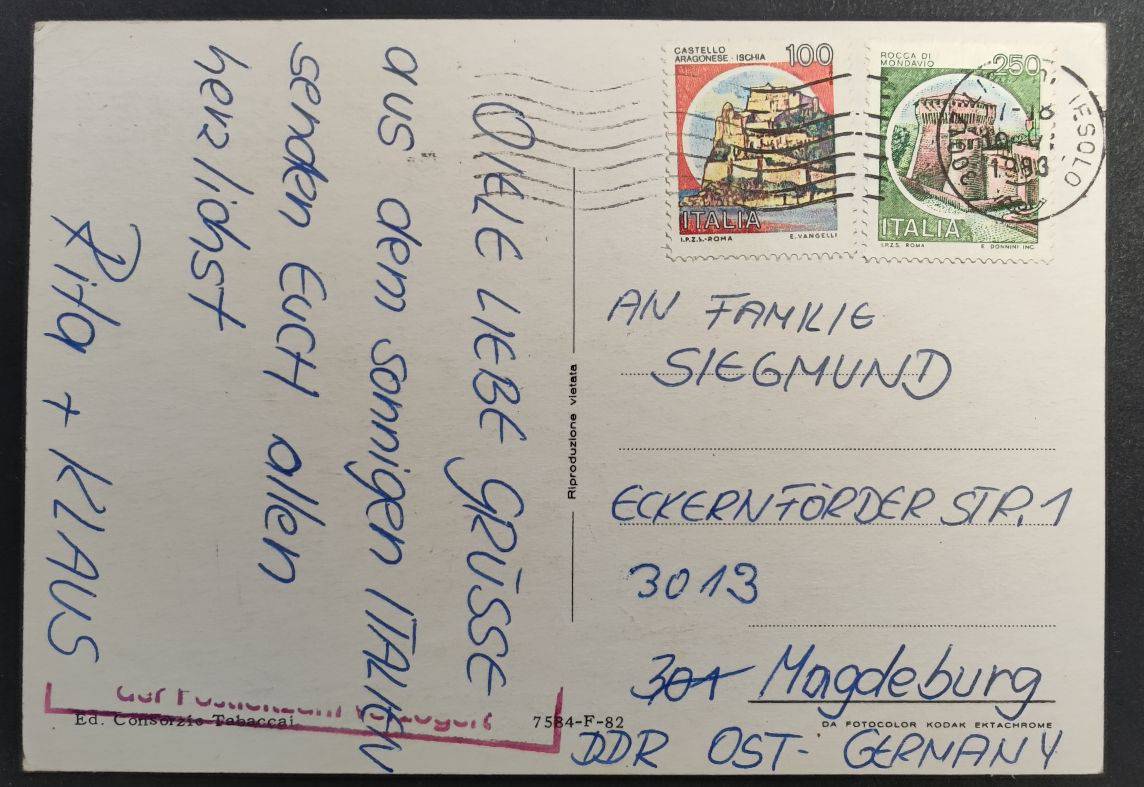 VIELE LIEBE GRÜSSE
aus dem sonnigen ITALIEN
senden EUCH allen
herzlichst
Rita + KLAUS
CASTELLO
ARAGONESE · ISCHIA
100
ITALIA
I.P.Z.S.-ROMA
E. VANGELLI
ROCCA DI
MONDAVIO
250
ITALIA
I.P.Z.S. ROMA
E. DONNINI INC.
IESOLO
1983
AN FAMILIE
SIEGMUND
ECKERNFÖRDER STR. 1
3013
301 Magdeburg
DDR OST-GERMANY
Riproduzione vietata
Ed. Consorzio Tabaccai
7584-F-82
DA FOTOCOLOR KODAK EKTACHROME